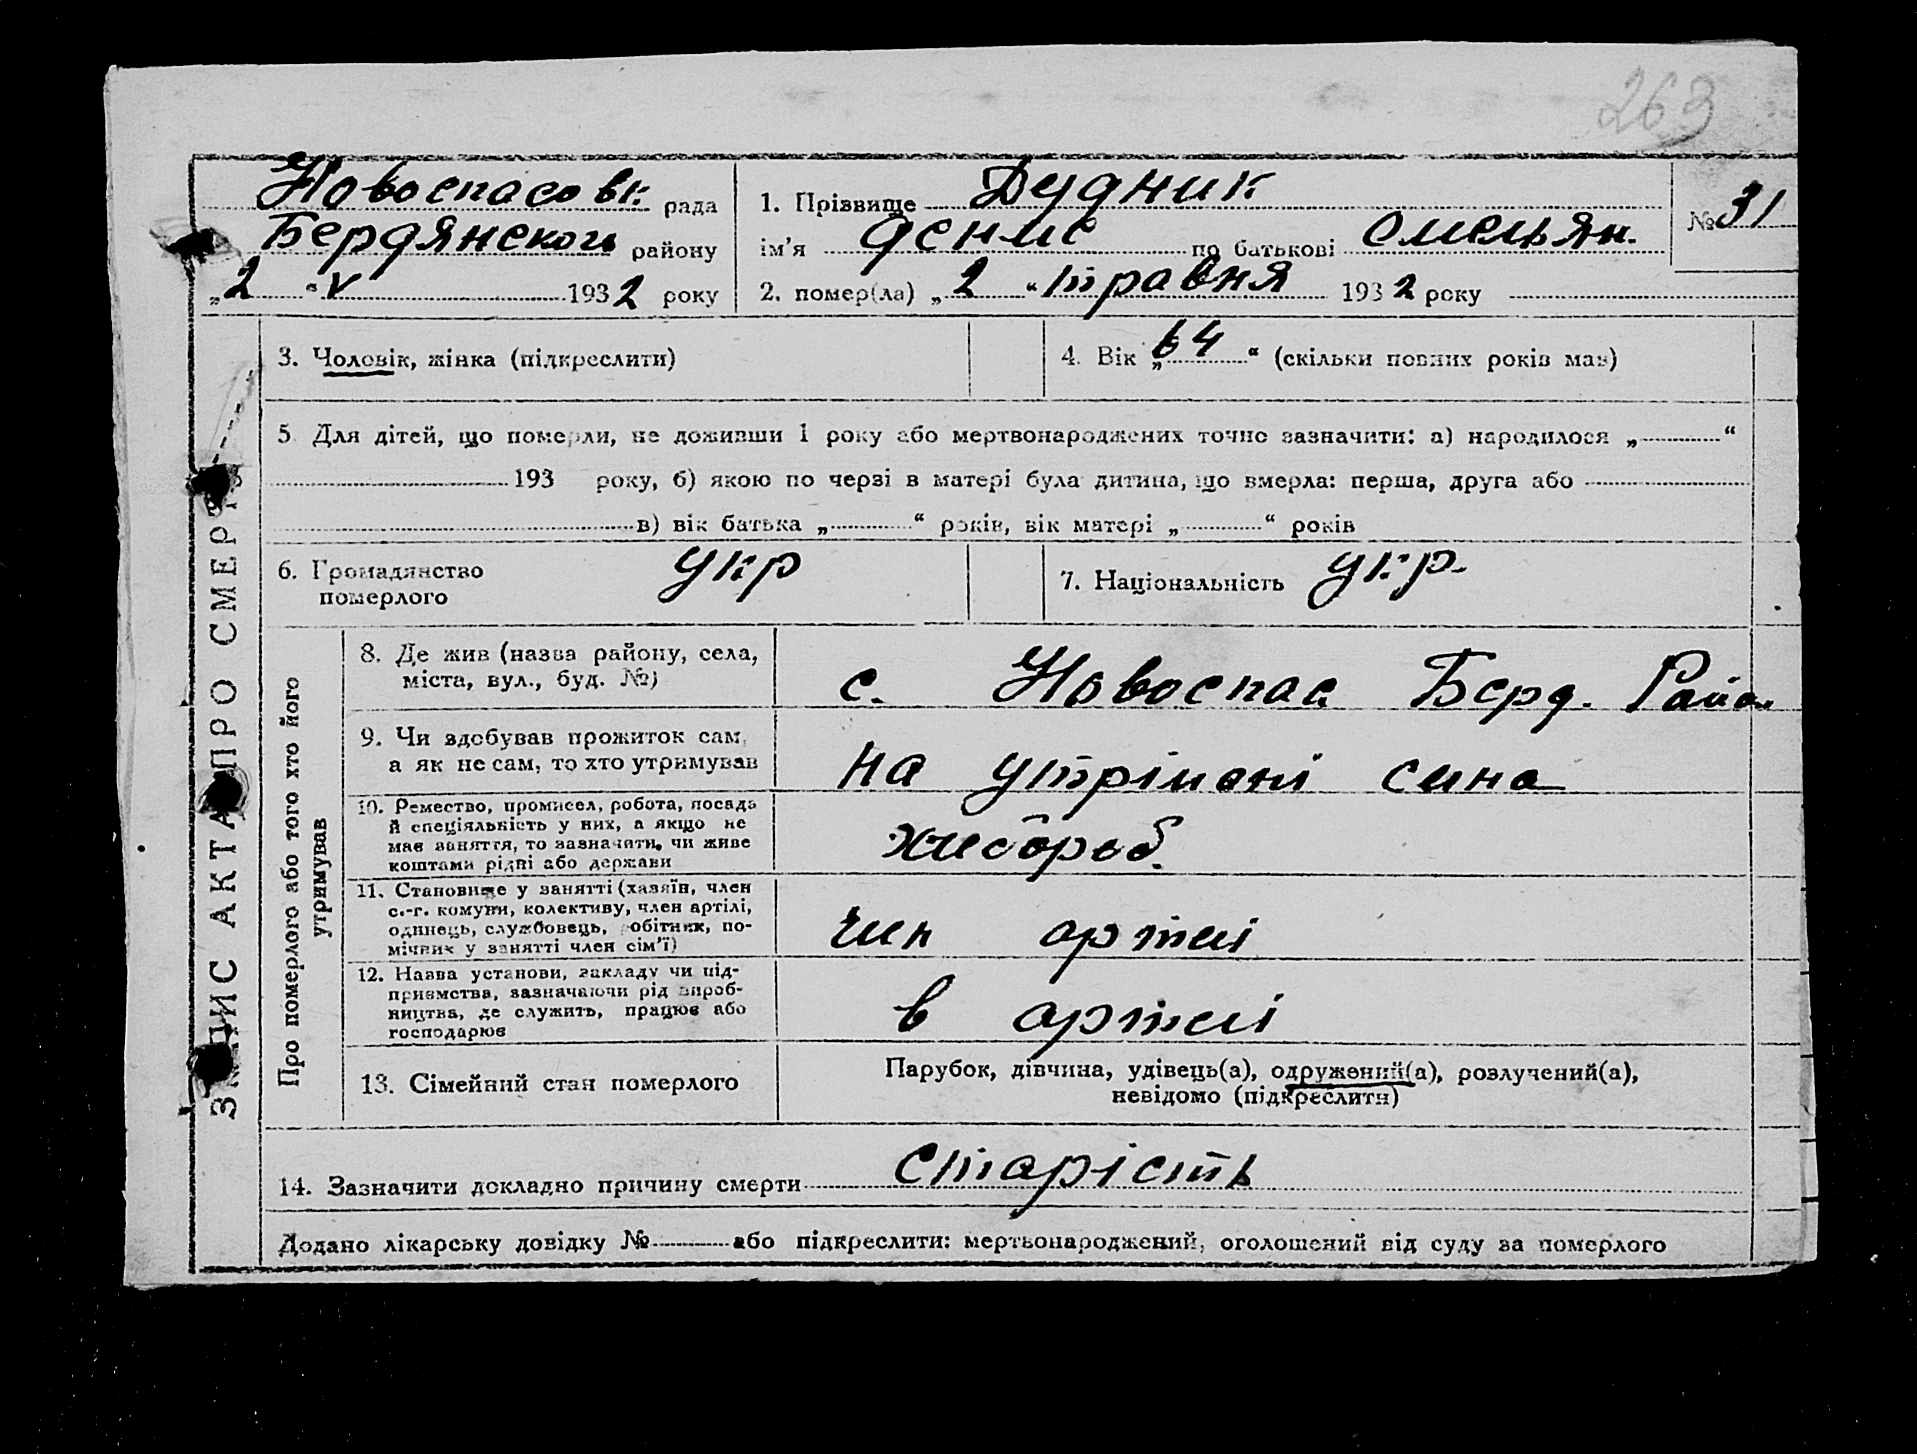 263
Новоспасовк. рада
Бердянского району
„2“ V 1932 року
1. Прізвище Дудник
ім'я Денис по батькові Омельян.
2. помер(ла) „2“ травня 1932 року
№ 31
ЗАПИС АКТА ПРО СМЕРТЬ
3. Чоловік, жінка (підкреслити)
4. Вік „64“ (скільки повних років мав)
5. Для дітей, що померли, не доживши 1 року або мертвонароджених точно зазначити: а) народилося „ “
193 року, б) якою по черзі в матері була дитина, що вмерла: перша, друга або
в) вік батька „ “ років, вік матері „ “ років
6. Громадянство
померлого
укр
7. Національність укр.
Про померлого або того хто його
утримував
8. Де жив (назва району, села,
міста, вул., буд. №)
с. Новоспас Берд. Район
9. Чи здобував прожиток сам,
а як не сам, то хто утримував
на утрімані сина
10. Ремество, промисел, робота, посада
й спеціяльність у них, а якщо не
має заняття, то зазначити, чи живе
коштами рідні або держави
хлібороб.
11. Становище у занятті (хазяїн, член
с.-г. комуни, колективу, член артілі,
одинець, службовець, робітник, по-
мічник у занятті член сім'ї)
член артілі
12. Назва установи, закладу чи під-
приємства, зазначаючи рід вироб-
ництва, де служить, працює або
господарює
в артілі
13. Сімейний стан померлого
Парубок, дівчина, удівець(а), одружений(а), розлучений(а),
невідомо (підкреслити)
14. Зазначити докладно причину смерти старість
Додано лікарську довідку № або підкреслити: мертвонароджений, оголошений від суду за померлого